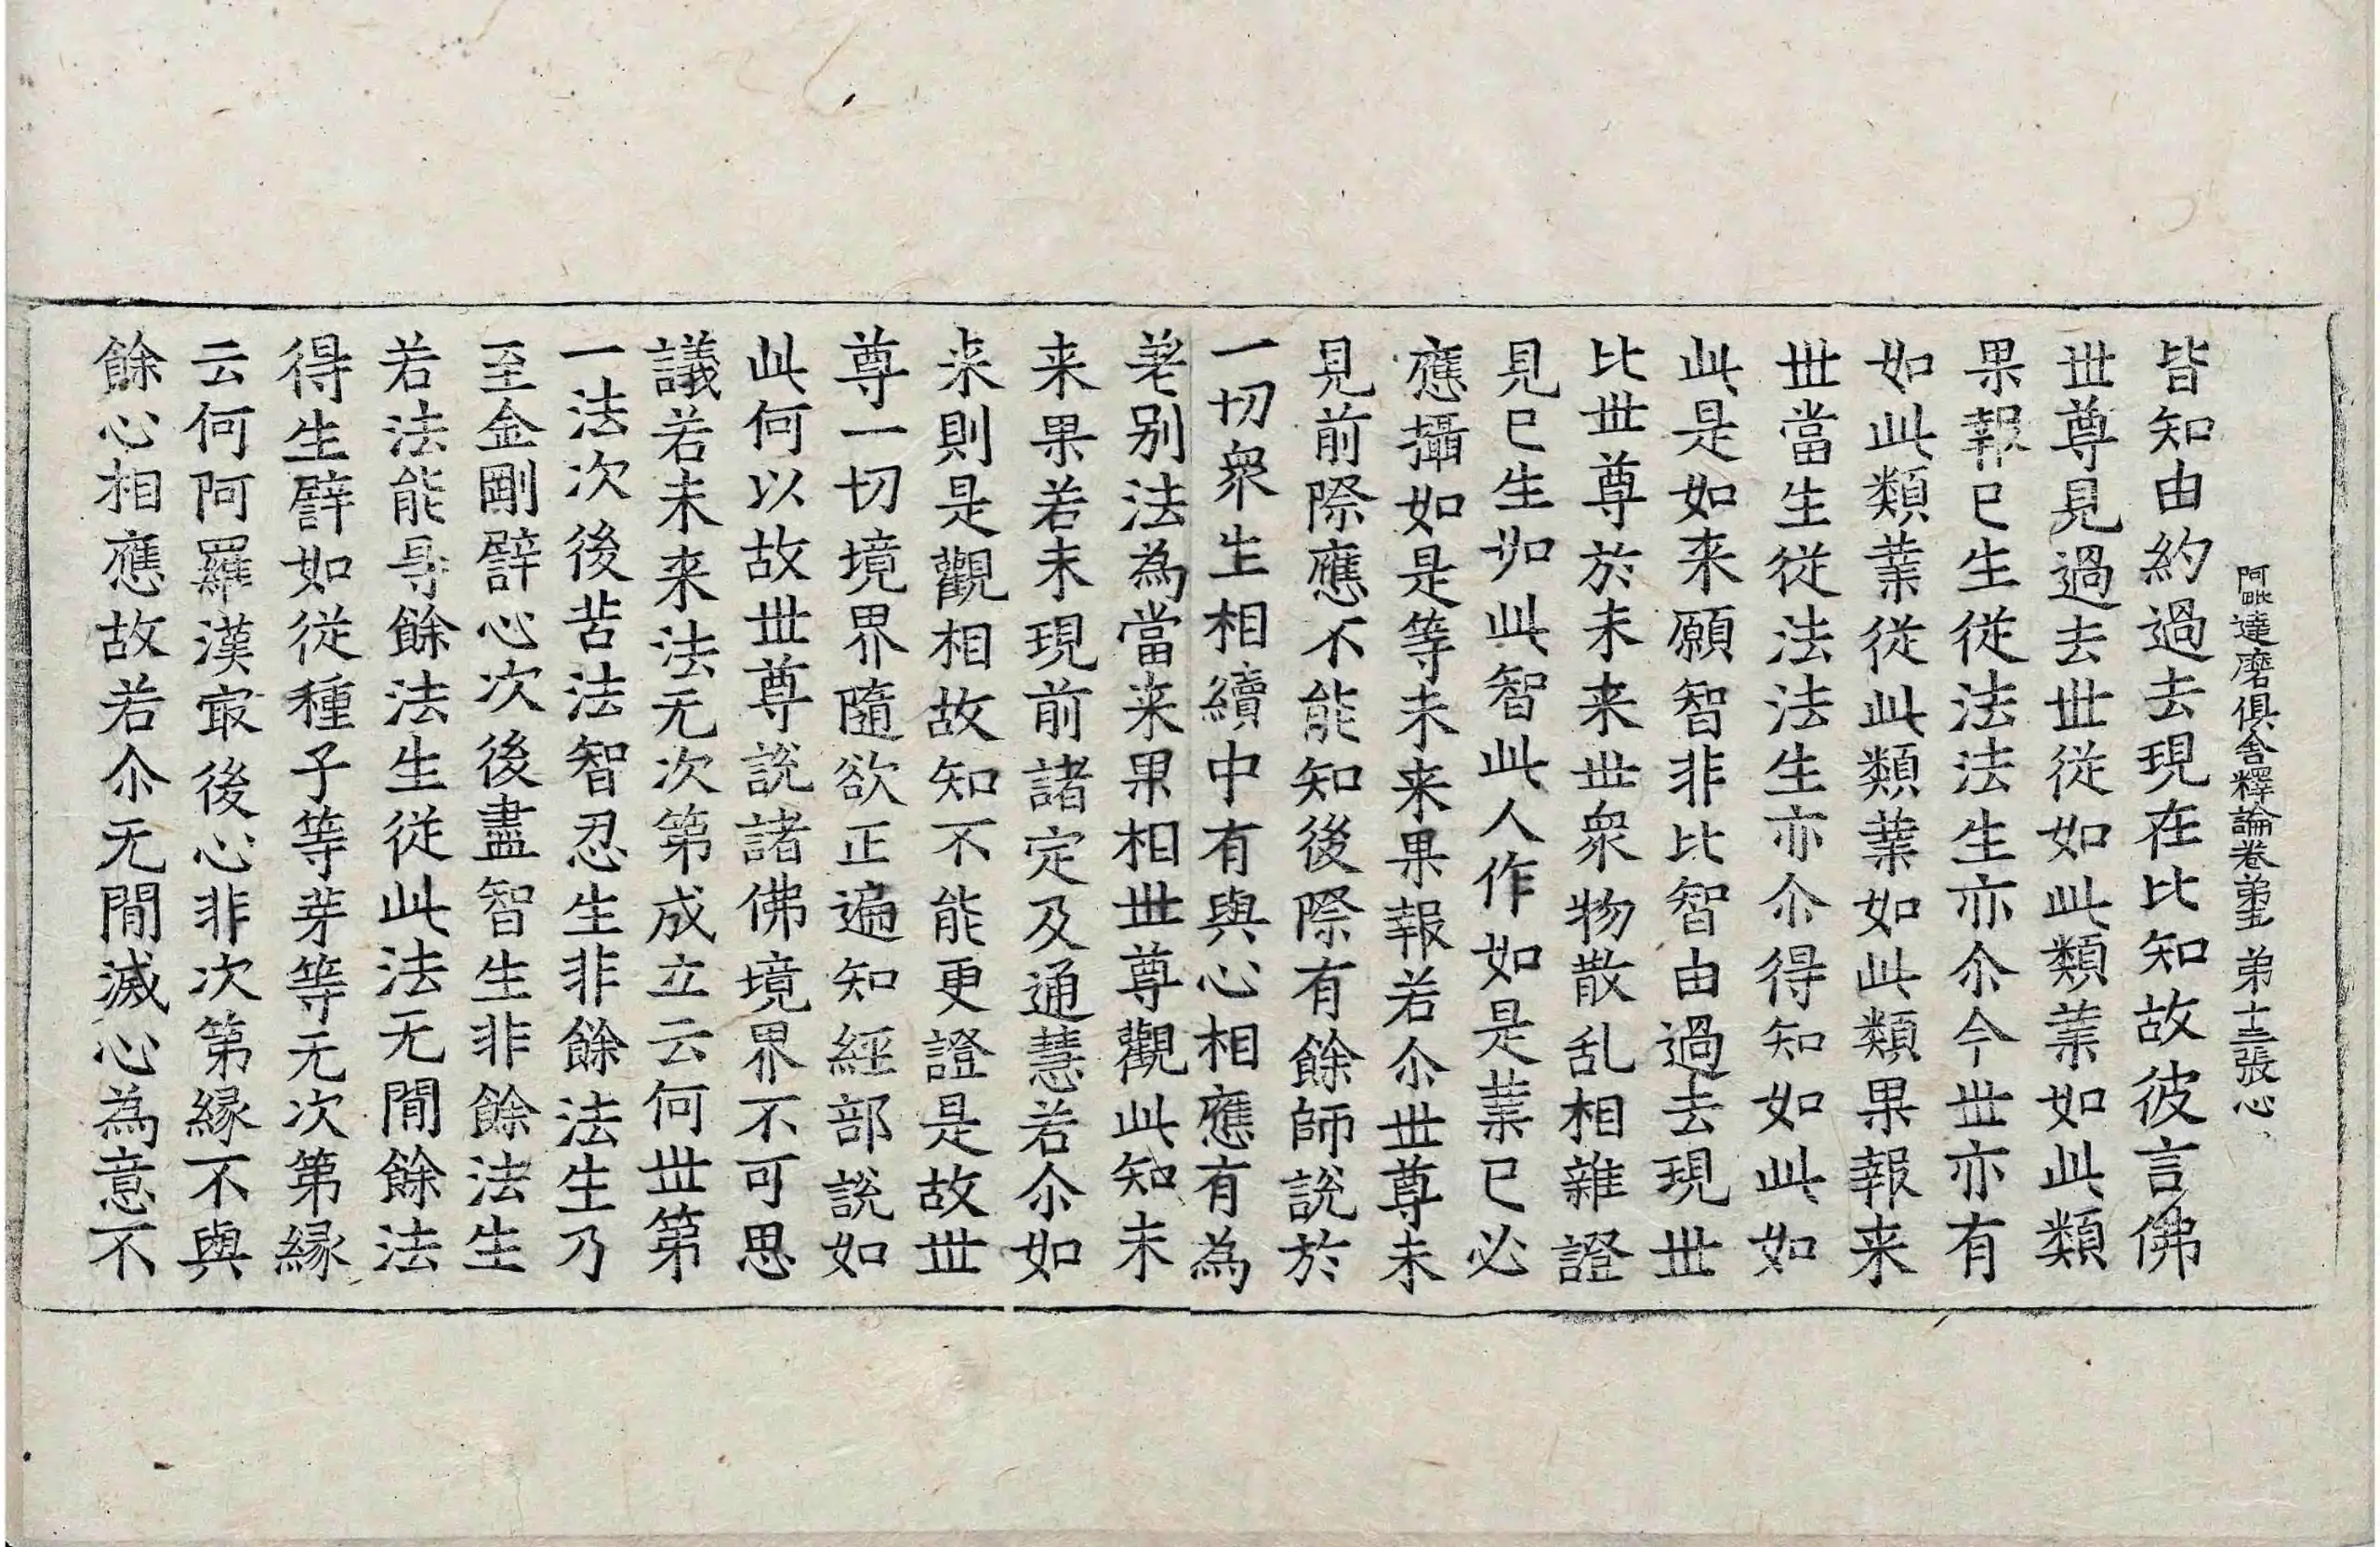 阿毗達磨俱舍釋論卷第五 第十三張 心
皆知由約過去現在比知故彼言佛
世尊見過去世從如此類業如此類
果報已生從法法生亦尒今世亦有
如此類業從此類業如此類果報来
世當生從法法生亦尒得知如此如
此是如来願智非比智由過去現世
比世尊於未来世衆物散乱相雜證
見已生如此智此人作如是業已必
應攝如是等未来果報若尒世尊未
見前際應不能知後際有餘師說於
一切衆生相續中有與心相應有為
差别法為當来果相世尊觀此知未
来果若未現前諸定及通慧若尒如
来則是觀相故知不能更證是故世
尊一切境界隨欲正遍知經部說如
此何以故世尊說諸佛境界不可思
議若未来法无次第成立云何世第
一法次後苦法智忍生非餘法生乃
至金剛譬心次後盡智生非餘法生
若法能㝵餘法生從此法无間餘法
得生譬如從種子等芽等无次第緣
云何阿羅漢㝡後心非次第緣不與
餘心相應故若尒无間滅心為意不